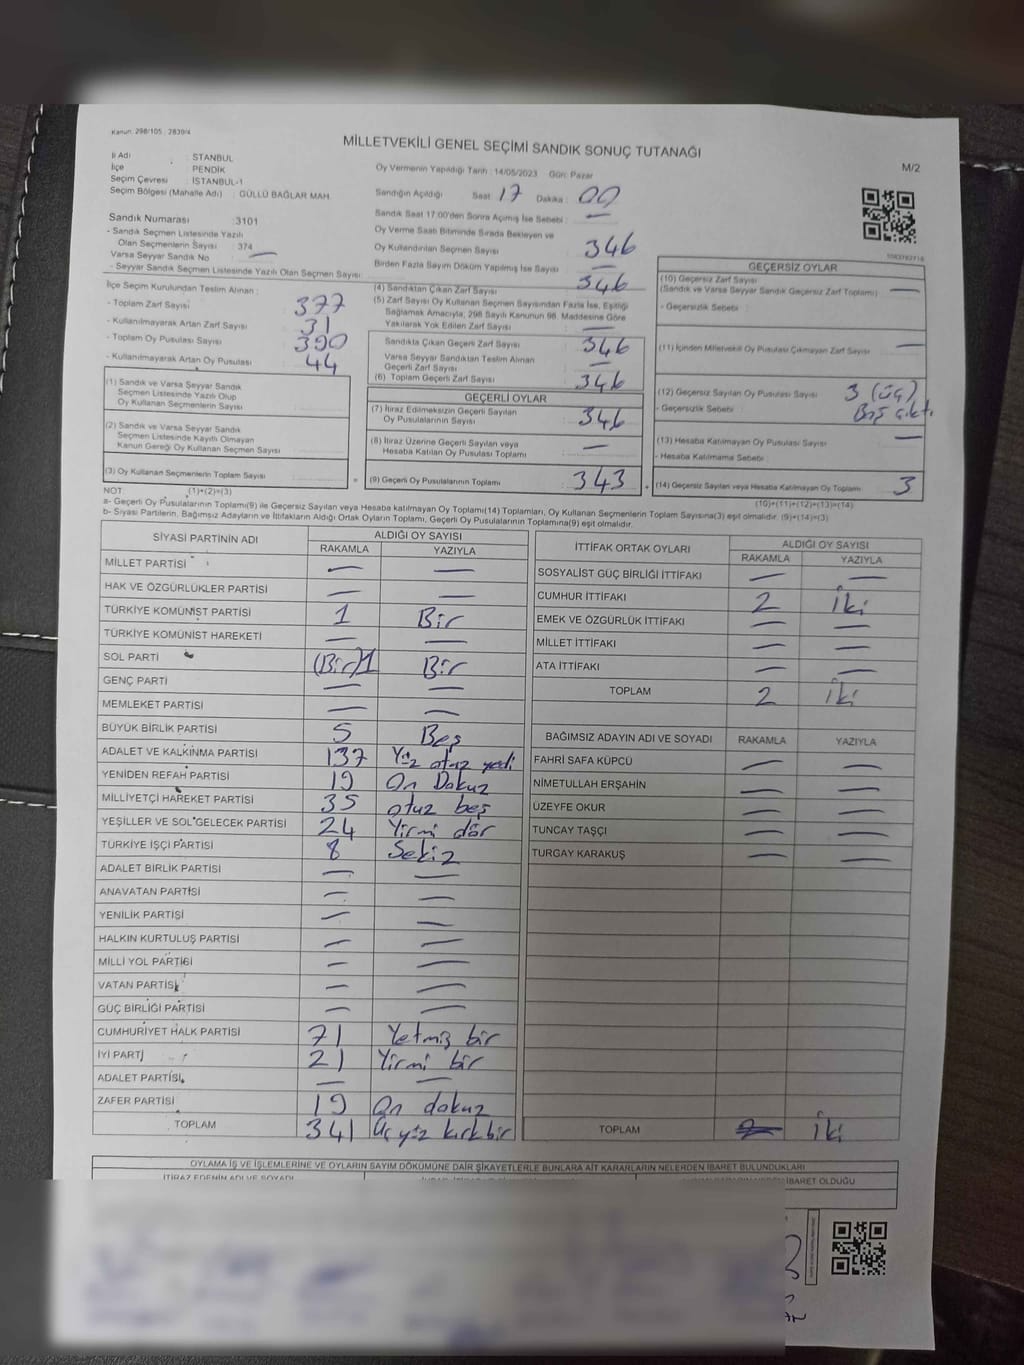 Kanun: 298/105 ; 2839/4
MİLLETVEKİLİ GENEL SEÇİMİ SANDIK SONUÇ TUTANAĞI
M/2
İl Adı : STANBUL
İlçe : PENDİK
Seçim Çevresi : İSTANBUL-1
Seçim Bölgesi (Mahalle Adı) : GÜLLÜ BAĞLAR MAH.
Oy Vermenin Yapıldığı Tarih : 14/05/2023 Gün: Pazar
Sandığın Açıldığı Saat : 17 Dakika : 00
Sandık Saat 17:00'den Sonra Açımış İse Sebebi : —
Oy Verme Saati Bitiminde Sırada Bekleyen ve
Oy Kullandırılan Seçmen Sayısı 346
Birden Fazla Sayım Döküm Yapılmış İse Sayısı —
Sandık Numarası : 3101
- Sandık Seçmen Listesinde Yazılı
Olan Seçmenlerin Sayısı : 374
Varsa Seyyar Sandık No —
- Seyyar Sandık Seçmen Listesinde Yazılı Olan Seçmen Sayısı
İlçe Seçim Kurulundan Teslim Alınan :
- Toplam Zarf Sayısı : 377
- Kullanılmayarak Artan Zarf Sayısı : 31
- Toplam Oy Pusulası Sayısı : 390
- Kullanılmayarak Artan Oy Pusulası : 44
(1) Sandık ve Varsa Seyyar Sandık
Seçmen Listesinde Yazılı Olup
Oy Kullanan Seçmenlerin Sayısı :
(2) Sandık ve Varsa Seyyar Sandık
Seçmen Listesinde Kayıtlı Olmayan
Kanun Gereği Oy Kullanan Seçmen Sayısı
(3) Oy Kullanan Seçmenlerin Toplam Sayısı
(4) Sandıktan Çıkan Zarf Sayısı : 346
(5) Zarf Sayısı Oy Kullanan Seçmen Sayısından Fazla İse, Eşitliği
Sağlamak Amacıyla, 298 Sayılı Kanunun 98. Maddesine Göre
Yakılarak Yok Edilen Zarf Sayısı : —
Sandıkta Çıkan Geçerli Zarf Sayısı : 346
Varsa Seyyar Sandıktan Teslim Alınan
Geçerli Zarf Sayısı —
(6) Toplam Geçerli Zarf Sayısı : 346
GEÇERLİ OYLAR
(7) İtiraz Edilmeksizin Geçerli Sayılan
Oy Pusulalarının Sayısı : 346
(8) İtiraz Üzerine Geçerli Sayılan veya
Hesaba Katılan Oy Pusulası Toplamı : —
(9) Geçerli Oy Pusulalarının Toplamı : 343
GEÇERSİZ OYLAR
(10) Geçersiz Zarf Sayısı
(Sandık ve Varsa Seyyar Sandık Geçersiz Zarf Toplamı) : —
- Geçersizlik Sebebi :
(11) İçinden Milletvekili Oy Pusulası Çıkmayan Zarf Sayısı : —
(12) Geçersiz Sayılan Oy Pusulası Sayısı : 3 (üç)
- Geçersizlik Sebebi : Boş çıktı
(13) Hesaba Katılmayan Oy Pusulası Sayısı : —
- Hesaba Katılmama Sebebi :
(14) Geçersiz Sayılan veya Hesaba Katılmayan Oy Toplamı : 3
NOT : (1)+(2)=(3)
(10)+(11)+(12)+(13)=(14)
a- Geçerli Oy Pusulalarının Toplamı(9) ile Geçersiz Sayılan veya Hesaba katılmayan Oy Toplamı(14) Toplamları, Oy Kullanan Seçmenlerin Toplam Sayısına(3) eşit olmalıdır. (9)+(14)=(3)
b- Siyasi Partilerin, Bağımsız Adayların ve İttifakların Aldığı Ortak Oyların Toplamı, Geçerli Oy Pusulalarının Toplamına(9) eşit olmalıdır.
SİYASİ PARTİNİN ADI ALDIĞI OY SAYISI
RAKAMLA YAZIYLA
MİLLET PARTİSİ — —
HAK VE ÖZGÜRLÜKLER PARTİSİ — —
TÜRKİYE KOMÜNİST PARTİSİ 1 Bir
TÜRKİYE KOMÜNİST HAREKETİ — —
SOL PARTİ (Bir)1 Bir
GENÇ PARTİ — —
MEMLEKET PARTİSİ — —
BÜYÜK BİRLİK PARTİSİ 5 Beş
ADALET VE KALKINMA PARTİSİ 137 Yüz otuz yedi
YENİDEN REFAH PARTİSİ 19 On Dokuz
MİLLİYETÇİ HAREKET PARTİSİ 35 otuz beş
YEŞİLLER VE SOL GELECEK PARTİSİ 24 Yirmi dör
TÜRKİYE İŞÇİ PARTİSİ 8 Sekiz
ADALET BİRLİK PARTİSİ — —
ANAVATAN PARTİSİ — —
YENİLİK PARTİSİ — —
HALKIN KURTULUŞ PARTİSİ — —
MİLLİ YOL PARTİSİ — —
VATAN PARTİSİ — —
GÜÇ BİRLİĞİ PARTİSİ — —
CUMHURİYET HALK PARTİSİ 71 Yetmiş bir
İYİ PARTİ 21 Yirmi bir
ADALET PARTİSİ — —
ZAFER PARTİSİ 19 On dokuz
TOPLAM 341 Üçyüz kırkbir
İTTİFAK ORTAK OYLARI ALDIĞI OY SAYISI
RAKAMLA YAZIYLA
SOSYALİST GÜÇ BİRLİĞİ İTTİFAKI — —
CUMHUR İTTİFAKI 2 İki
EMEK VE ÖZGÜRLÜK İTTİFAKI — —
MİLLET İTTİFAKI — —
ATA İTTİFAKI — —
TOPLAM 2 İki
BAĞIMSIZ ADAYIN ADI VE SOYADI RAKAMLA YAZIYLA
FAHRİ SAFA KÜPCÜ — —
NİMETULLAH ERŞAHİN — —
ÜZEYFE OKUR — —
TUNCAY TAŞÇI — —
TURGAY KARAKUŞ — —
TOPLAM 2 İki
OYLAMA İŞ VE İŞLEMLERİNE VE OYLARIN SAYIM DÖKÜMÜNE DAİR ŞİKAYETLERLE BUNLARA AİT KARARLARIN NELERDEN İBARET BULUNDUKLARI
İTİRAZ EDENİN ADI VE SOYADI
İBARET OLDUĞU